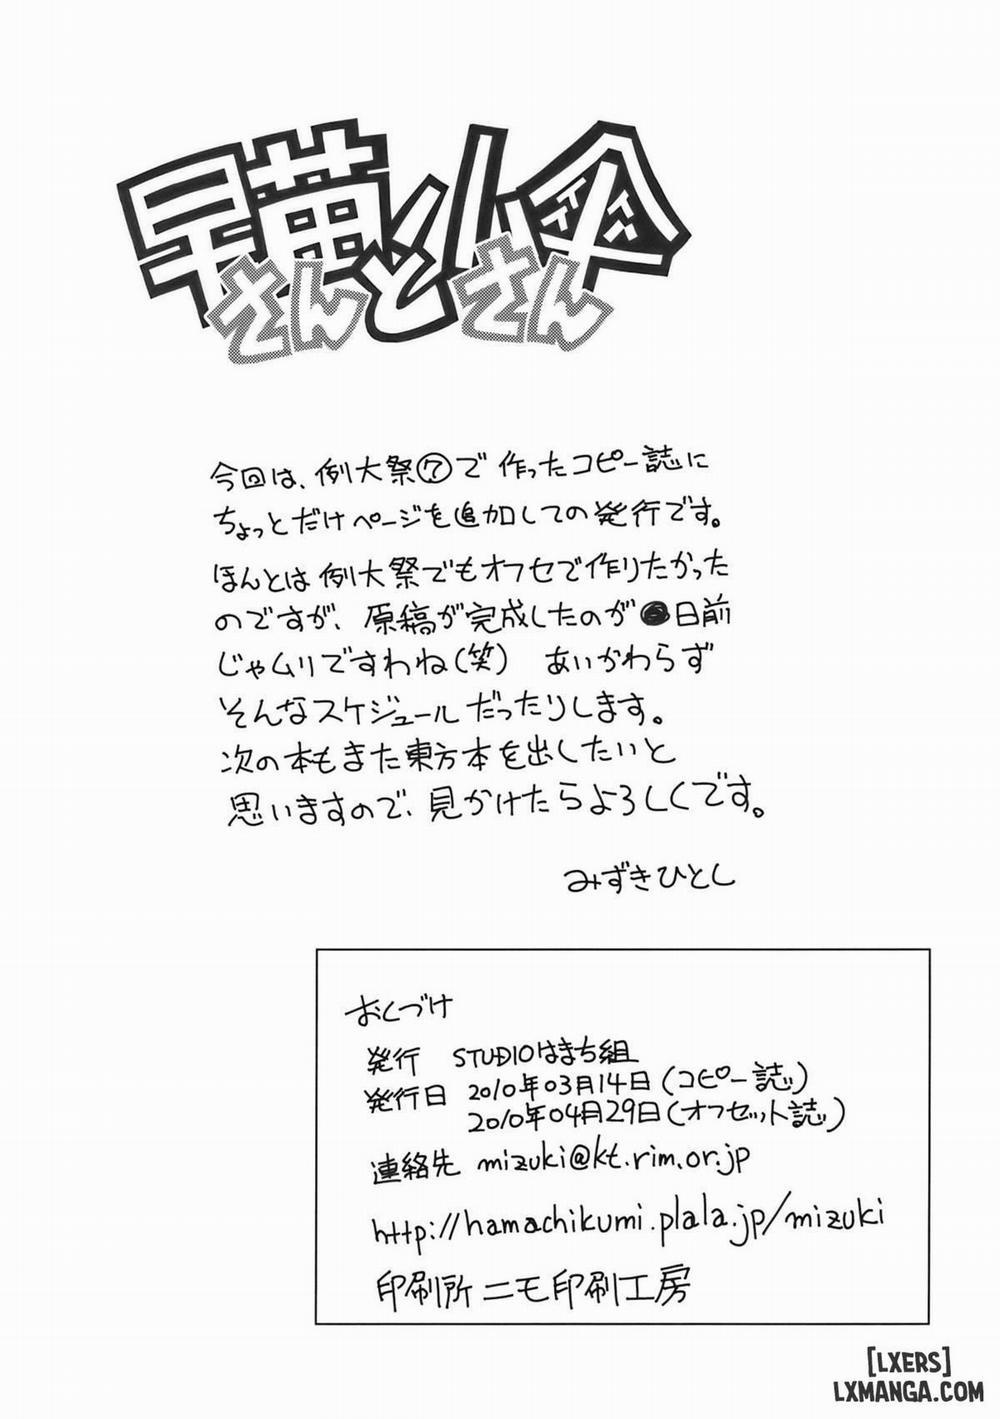 早苗さんと小傘さん
今回は、例大祭⑦で作ったコピー誌に
ちょっとだけページを追加しての発行です。
ほんとは例大祭でもオフセで作りたかった
のですが、原稿が完成したのが●日前
じゃムリですわね(笑) あいかわらず
そんなスケジュールだったりします。
次の本もまた東方本を出したいと
思いますので、見かけたらよろしくです。
みずきひとし
おくづけ
発行 STUDIOはまち組
発行日 2010年03月14日(コピー誌)
2010年04月29日(オフセット誌)
連絡先 mizuki@kt.rim.or.jp
http://hamachikumi.plala.jp/mizuki
印刷所 ニモ印刷工房
[LXERS]
LXMANGA.COM